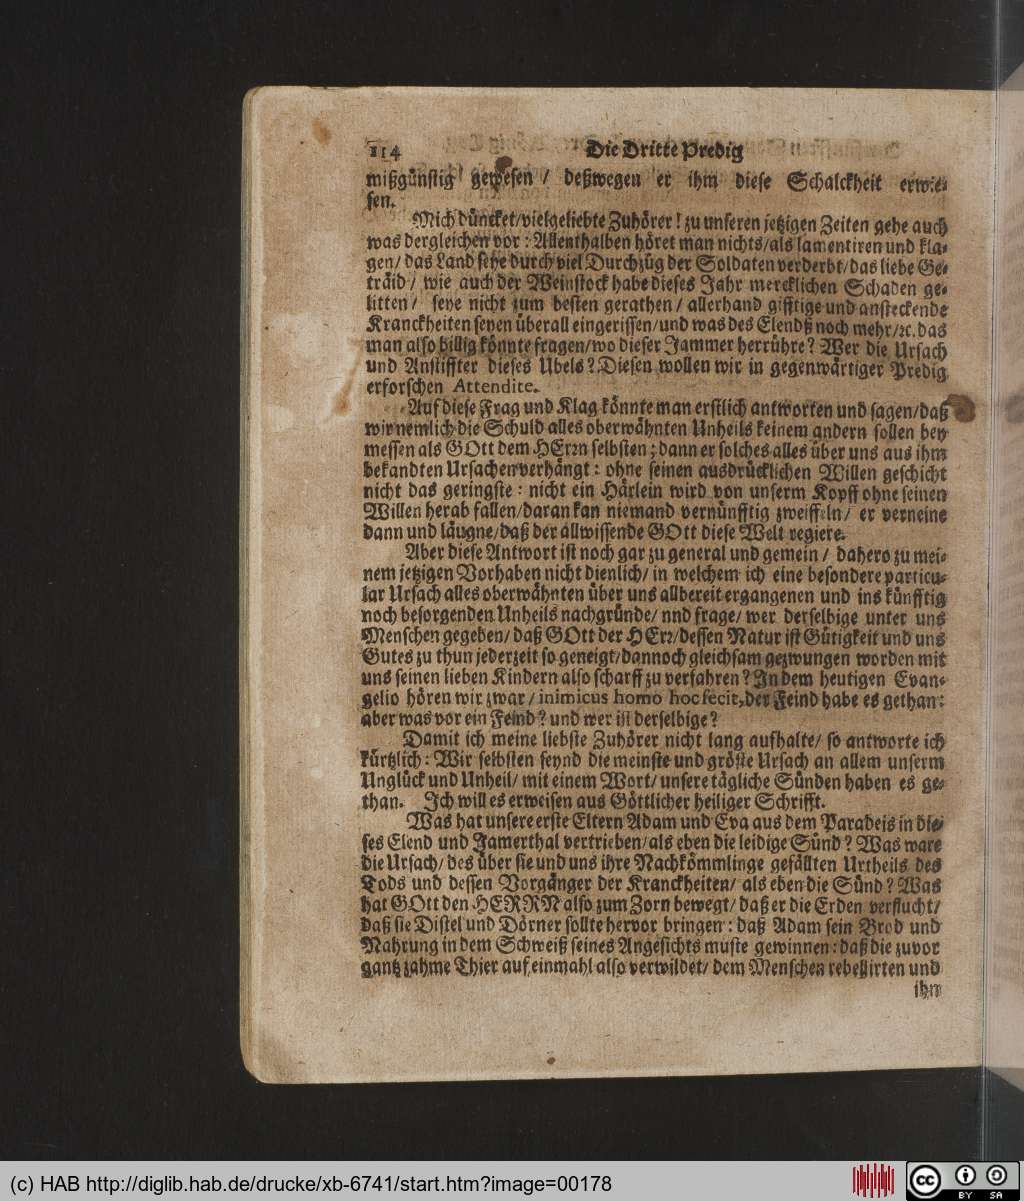 114 Die Dritte Predig
mißgünstig gewesen / deßwegen er ihm diese Schalckheit erwie-
sen.
Mich düncket/vielgeliebte Zuhörer! zu unseren jetzigen Zeiten gehe auch
was dergleichen vor: Allenthalben höret man nichts/als lamentiren und kla-
gen/ das Land seye durch viel Durchzüg der Soldaten verderbt/das liebe Ge-
träid/ wie auch der Weinstock habe dieses Jahr mercklichen Schaden ge-
litten/ seye nicht zum besten gerathen/ allerhand gifftige und ansteckende
Kranckheiten seyen überall eingerissen/und was des Elendß noch mehr/ꝛc. das
man also billig könnte fragen/wo dieser Jammer herrühre? Wer die Ursach
und Anstiffter dieses Ubels? Diesen wollen wir in gegenwärtiger Predig
erforschen Attendite.
Auf diese Frag und Klag könnte man erstlich antworten und sagen/daß
wir nemlich die Schuld alles oberwähnten Unheils keinem andern sollen bey
messen als GOtt dem HErꝛn selbsten; dann er solches alles über uns aus ihm
bekandten Ursachen verhängt: ohne seinen ausdrücklichen Willen geschicht
nicht das geringste: nicht ein Härlein wird von unserm Kopff ohne seinen
Willen herab fallen/daran kan niemand vernünfftig zweiffeln/ er verneine
dann und läugne/daß der allwissende GOtt diese Welt regiere.
Aber diese Antwort ist noch gar zu general und gemein/ dahero zu mei-
nem jetzigen Vorhaben nicht dienlich/ in welchem ich eine besondere particu-
lar Ursach alles oberwähnten über uns allbereit ergangenen und ins künfftig
noch besorgenden Unheils nachgründe/ nnd frage/ wer derselbige unter uns
Menschen gegeben/ daß GOtt der HErꝛ/dessen Natur ist Gütigkeit und uns
Gutes zu thun jederzeit so geneigt/dannoch gleichsam gezwungen worden mit
uns seinen lieben Kindern also scharff zu verfahren? In dem heutigen Evan-
gelio hören wir zwar/ inimicus homo hoc fecit, der Feind habe es gethan:
aber was vor ein Feind? und wer ist derselbige?
Damit ich meine liebste Zuhörer nicht lang aufhalte/ so antworte ich
kürtzlich: Wir selbsten seynd die meinste und gröste Ursach an allem unserm
Unglück und Unheil/ mit einem Wort/ unsere tägliche Sünden haben es ge-
than. Ich will es erweisen aus Göttlicher heiliger Schrifft.
Was hat unsere erste Eltern Adam und Eva aus dem Paradeis in die-
ses Elend und Jamerthal vertrieben/als eben die leidige Sünd? Was ware
die Ursach/ des über sie und uns ihre Nachkömmlinge gefällten Urtheils des
Tods und dessen Vorgänger der Kranckheiten/ als eben die Sünd? Was
hat GOtt den HERRN also zum Zorn bewegt/ daß er die Erden verflucht/
daß sie Distel und Dörner sollte hervor bringen: daß Adam sein Brod und
Nahrung in dem Schweiß seines Angesichts muste gewinnen: daß die zuvor
gantz zahme Thier auf einmahl also verwildet/ dem Menschen rebellirten und
ihn
(c) HAB http://diglib.hab.de/drucke/xb-6741/start.htm?image=00178
cc BY SA